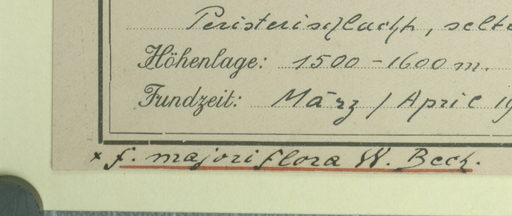 Peristerischlucht, selte
Höhenlage: 1500-1600 m.
Fundzeit: März / April 19
x f. majoriflora W. Beck.